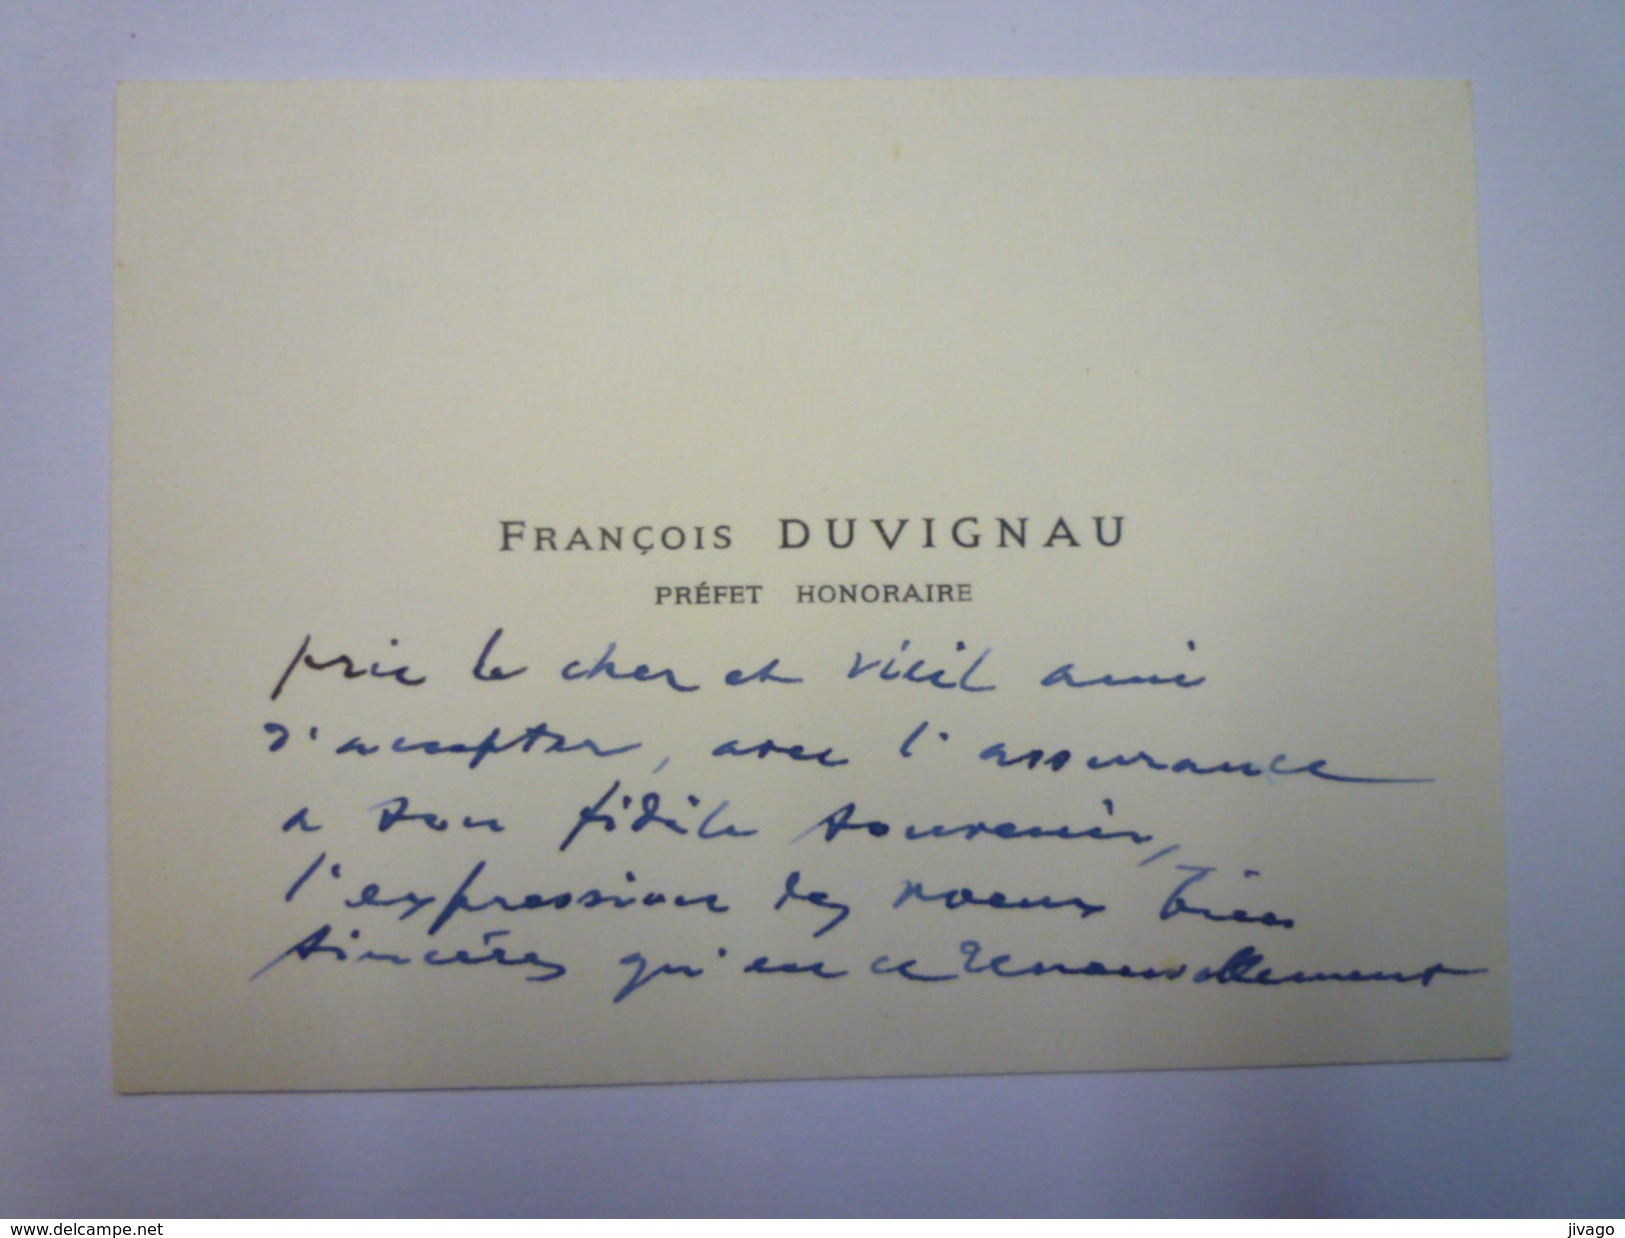 FRANÇOIS DUVIGNAU
PRÉFET HONORAIRE
prie le cher et vieil ami
d'accepter, avec l'assurance
a son fidèle souvenir,
l'expression des voeux bien
sincères qu'en ce renouvellement
www.delcampe.net
jivago